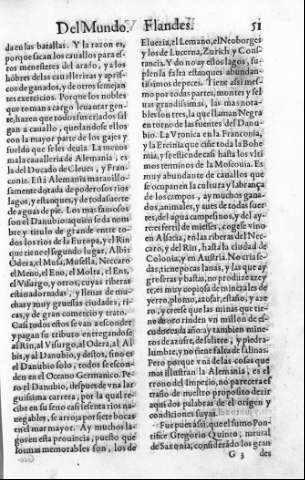 Del Mundo. Flandes. 51
da en las batallas. Y la razon es,
porque sacan los cauallos para es-
tos menesteres del arado, y a los
hõbres de las caualleriças y apris-
cos de ganados, y de otros semejan
tes exercicios. Porque los nobles
que toman a cargo leuantar gen-
te, hazen que todos sus criados sal
gan a cauallo, quedandose ellos
con la mayor parte de los gajes y
sueldo que se les deuia. La menos
mala caualleria de Alemania, es
la del Ducado de Cleues, y Fran-
conia. Està Alemania marauillo-
samente dotada de poderosos rios
lagos, y estanques, y de toda suerte
de aguas de pie. Los mas famosos
son el Danubio: a quien se da nom-
bre y titulo de grande entre to-
dos los rios de la Europa, y el Rin
que tiene el segundo lugar, Albis
Odera, el Mosa, Mosella, Neccaro
el Meno, el Eno, el Molta, el Ens,
el Visurgo, y otros, cuyas riberas
estàn adornadas, y llenas de mu-
chas y muy gruessas ciudades, ri-
cas, y de gran comercio y trato.
Casi todos estos se van a esconder
y pagan su tributo entregandose
al Rin, al Visurgo, al Odera, al Al
bis, y al Danubio, y destos, sino es
el Danubio solo, todos se escon-
den en el Oceano Germanico. Pe-
ro el Danubio, despues de vna lar
guissima carrera, por la qual re
cibe en su seno casi sesenta rios na-
uegables, se arroja por siete bocas
en el mar mayor. Ay muchos la-
gos en esta prouincia, puesto que
los mas memorables son, los de
Elueria, el Lemano, el Neoborges
y los de Lucerna, Zurich, y Cons-
tancia. Y do no ay estos lagos, su-
plen la falta estanques abundan-
tissimos de peces. Tiene assi mes-
mo por todas partes, montes y sel
uas grandissimas, las mas nota-
bles son tres, la que llaman Negra
en torno de las fuentes del Danu-
bio. La Vronica en la Franconia,
y la Ercinia que ciñe toda la Bohe
mia, y se estiende casi hasta los vlti
mos terminos de la Moscouia. Es
muy abundante de cauallos que
se ocupan en la cultura y labrança
de los campos, ay muchos gana-
dos, animales, y aues de todas suer
tes, del agua campesinos, y del ay-
re: es fertil de miesses, cogese vino
en Alsacia, en las riberas del Nec-
caro, y del Rin, hasta la ciudad de
Colonia, y en Austria. No cria se-
das, tiene pocas lanas, y las que ay
gresseras y bastas, no produze azey
te, es muy copiosa de minerales de
yerro, plomo, azofar, estaño, y aze
ro, y creese que las minas que tie-
ne de oro rinden vn millon de es-
cudos cada año: y tambien mine-
ros de azufre, de salitre, y piedra-
lumbre, y no tiene falta de salinas
Pero porque vna de las cosas que
mas illustran la Alemania, es el
trono del Imperio, no parecera ef
traño de nuestro proposito dezir
aqui dos palabras de el origen y
condiciones suyas.
Fue pues assi, que el sumo Pon-
tifice Gregorio Quinto, natural
de Saxonia, considerãdo los gran
G 3 des